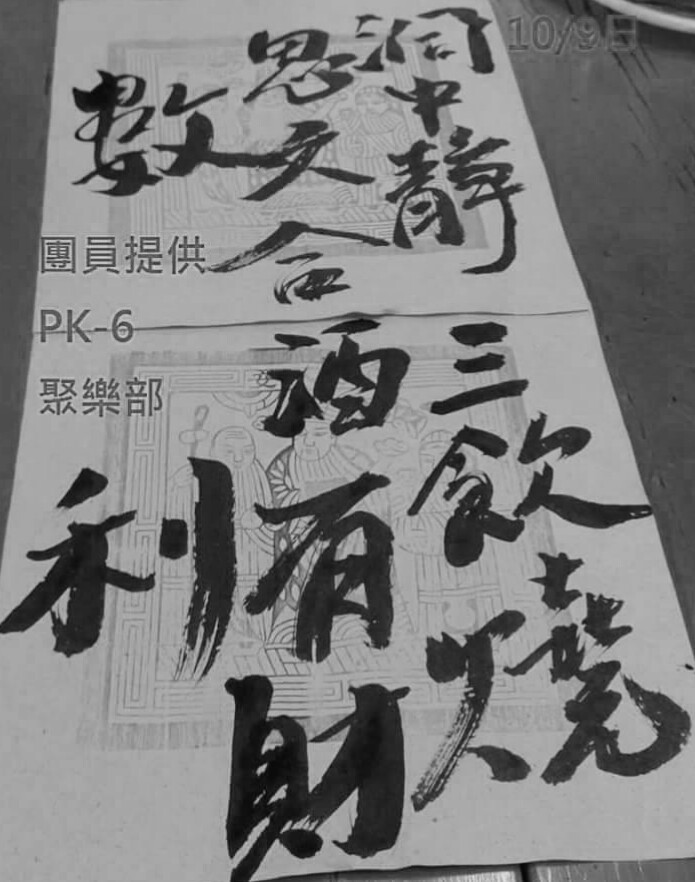 10/9日
洞中靜
思文合
數
三飲燒
酒有財
利
團員提供
PK-6
聚樂部